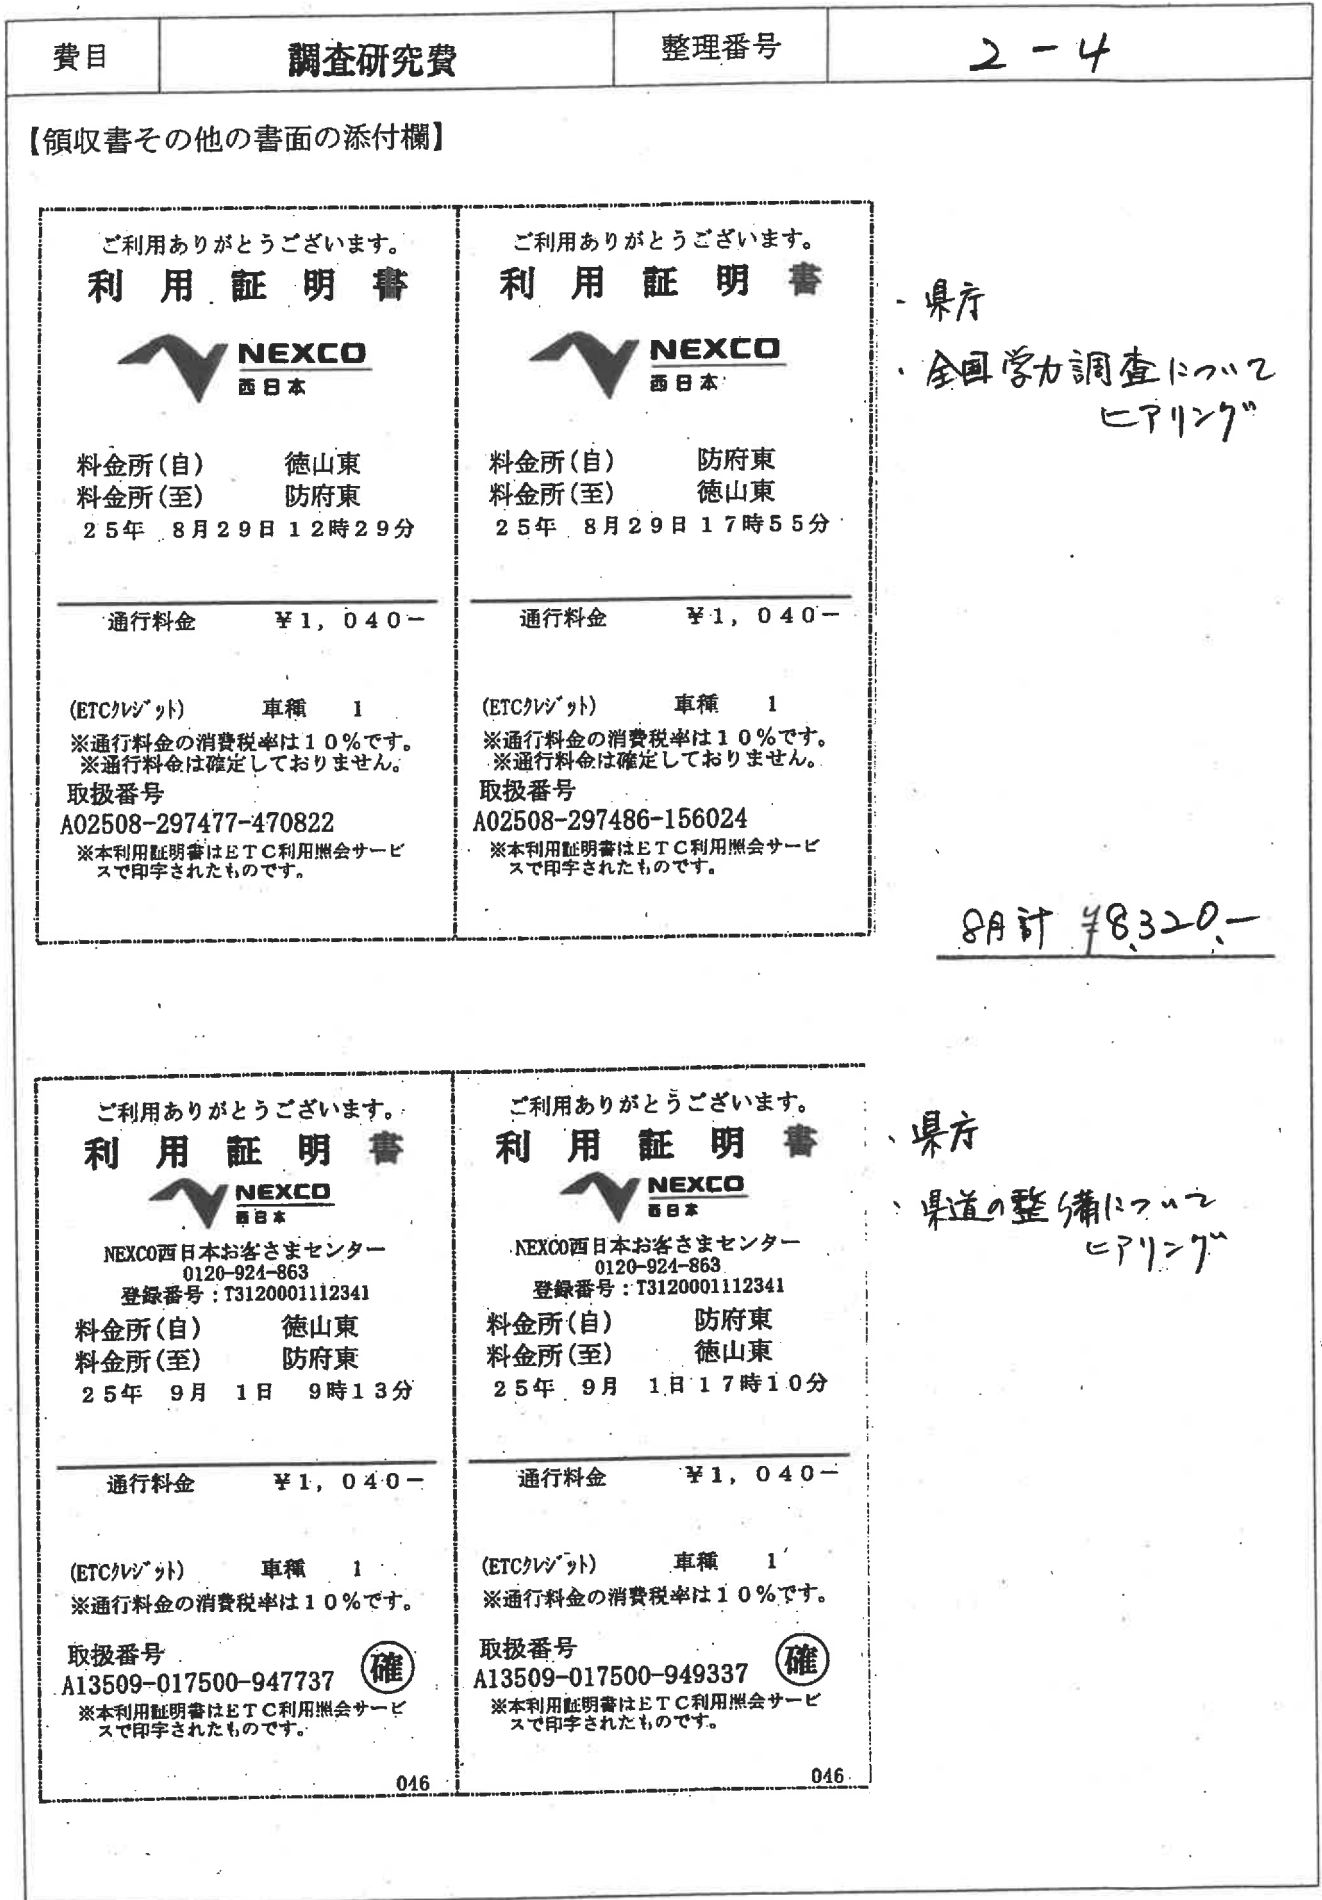 費目 調査研究費 整理番号 2-4
【領収書その他の書面の添付欄】
ご利用ありがとうございます。
利用証明書
NEXCO
西日本
料金所(自) 徳山東
料金所(至) 防府東
25年 8月29日12時29分
通行料金 ¥1,040-
(ETCクレジット) 車種 1
※通行料金の消費税率は10%です。
※通行料金は確定しておりません。
取扱番号
A02508-297477-470822
※本利用証明書はETC利用照会サービ
スで印字されたものです。
ご利用ありがとうございます。
利用証明書
NEXCO
西日本
料金所(自) 防府東
料金所(至) 徳山東
25年 8月29日17時55分
通行料金 ¥1,040-
(ETCクレジット) 車種 1
※通行料金の消費税率は10%です。
※通行料金は確定しておりません。
取扱番号
A02508-297486-156024
※本利用証明書はETC利用照会サービ
スで印字されたものです。
・県庁
・全国学力調査について
ヒアリング
8月計 ¥8,320.-
ご利用ありがとうございます。
利用証明書
NEXCO
西日本
NEXCO西日本お客さまセンター
0120-924-863
登録番号:T3120001112341
料金所(自) 徳山東
料金所(至) 防府東
25年 9月 1日 9時13分
通行料金 ¥1,040-
(ETCクレジット) 車種 1
※通行料金の消費税率は10%です。
取扱番号
A13509-017500-947737 確
※本利用証明書はETC利用照会サービ
スで印字されたものです。
046
ご利用ありがとうございます。
利用証明書
NEXCO
西日本
NEXCO西日本お客さまセンター
0120-924-863
登録番号:T3120001112341
料金所(自) 防府東
料金所(至) 徳山東
25年 9月 1日17時10分
通行料金 ¥1,040-
(ETCクレジット) 車種 1
※通行料金の消費税率は10%です。
取扱番号
A13509-017500-949337 確
※本利用証明書はETC利用照会サービ
スで印字されたものです。
046
・県庁
・県道の整備について
ヒアリング